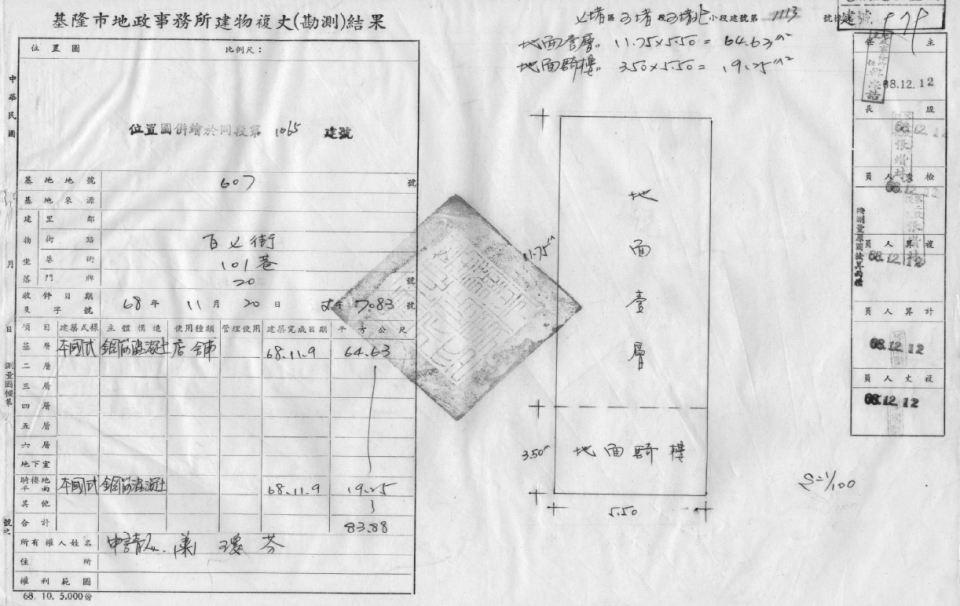 基隆市地政事務所建物複丈(勘測)結果
位置圖 比例尺：
位置圖併繪於同段第 1065 建號
中華民國
月
日
測量圖幅第
號之
基地地號 607 號
基地來源
建物坐落
里鄰
街路 百 街
巷術 101巷
門牌 20 號
收件日期及字號 68年 11月 20日 7083 號
項目 建築式樣 主體構造 使用種類 管理使用 建築完成日期 平方公尺
層 本國式 鋼筋混凝土 店舖 68.11.9 64.63
二層
三層
四層
五層
六層
地下室
騎樓地平面 本國式 鋼筋混凝土 68.11.9 19.25
其他
合計 83.88
所有權人姓名 申請人
住所
權利範圍
68. 10. 5,000份
小段建號第 1113 號
建號
地面壹層 11.75×5.50=64.63m²
地面騎樓 3.50×5.50=19.25m²
地面壹層
11.75m
地面騎樓
3.50m
5.50
S=1/100
主
68.12.12
股長
68.12.12
檢 人員
68.12.12
人員
68.12.12
計算人員
68.12.12
複丈人員
68.12.12